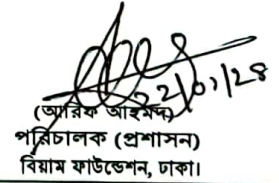 ২২/০১/২৪
(আরিফ আহমদ)
পরিচালক (প্রশাসন)
বিয়াম ফাউন্ডেশন, ঢাকা।